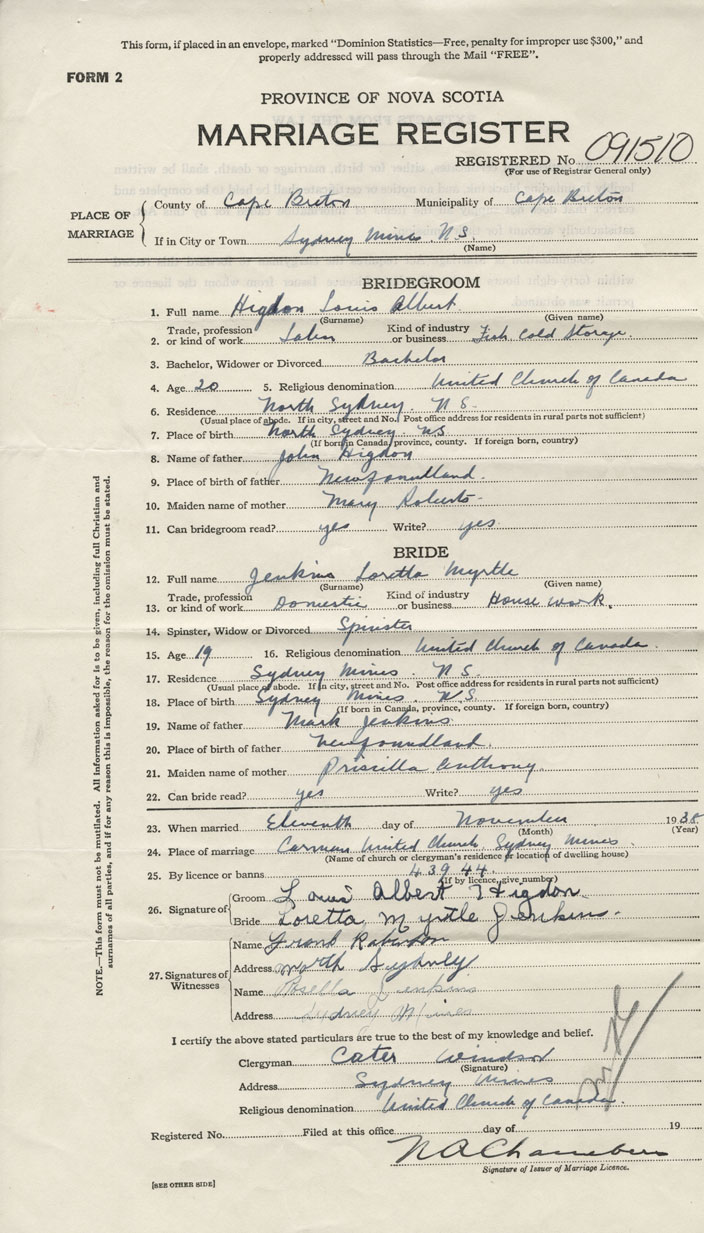 This form, if placed in an envelope, marked “Dominion Statistics—Free, penalty for improper use $300,” and
properly addressed will pass through the Mail “FREE”.
FORM 2
PROVINCE OF NOVA SCOTIA
MARRIAGE REGISTER
REGISTERED No. 091510
(For use of Registrar General only)
PLACE OF MARRIAGE
County of Cape Breton Municipality of Cape Breton
If in City or Town Sydney Mines N.S.
(Name)
BRIDEGROOM
1. Full name Higdon Louis Albert
(Surname) (Given name)
2. Trade, profession or kind of work Labor Kind of industry or business Fish Cold Storage
3. Bachelor, Widower or Divorced Bachelor
4. Age 20 5. Religious denomination United Church of Canada
6. Residence North Sydney. N.S.
(Usual place of abode. If in city, street and No. Post office address for residents in rural parts not sufficient)
7. Place of birth North Sydney NS
(If born in Canada, province, county. If foreign born, country)
8. Name of father John Higdon
9. Place of birth of father Newfoundland.
10. Maiden name of mother Mary Roberts
11. Can bridegroom read? yes Write? yes
BRIDE
12. Full name Jenkins Loretta Myrtle
(Surname) (Given name)
13. Trade, profession or kind of work Domestic Kind of industry or business House work.
14. Spinster, Widow or Divorced Spinster
15. Age 19 16. Religious denomination United Church of Canada.
17. Residence Sydney Mines. N.S.
(Usual place of abode. If in city, street and No. Post office address for residents in rural parts not sufficient)
18. Place of birth Sydney Mines. N.S.
(If born in Canada, province, county. If foreign born, country)
19. Name of father Mark Jenkins
20. Place of birth of father Newfoundland.
21. Maiden name of mother Priscilla Anthony
22. Can bride read? yes Write? yes
23. When married Eleventh day of November 1938
(Month) (Year)
24. Place of marriage Carman United Church, Sydney Mines.
(Name of church or clergyman's residence or location of dwelling house)
25. By licence or banns 43944
(If by licence, give number)
26. Signature of
Groom Louis Albert Higdon
Bride Loretta Myrtle Jenkins.
27. Signatures of Witnesses
Name Frank
Address North Sydney
Name Jenkins
Address Sydney Mines
I certify the above stated particulars are true to the best of my knowledge and belief.
Clergyman Cater Windsor
(Signature)
Address Sydney Mines
Religious denomination United Church of Canada.
Registered No. Filed at this office day of 19
Chambers
Signature of Issuer of Marriage Licence.
[SEE OTHER SIDE]
NOTE.—This form must not be mutilated. All information asked for is to be given, including full Christian and
surnames of all parties, and if for any reason this is impossible, the reason for the omission must be stated.